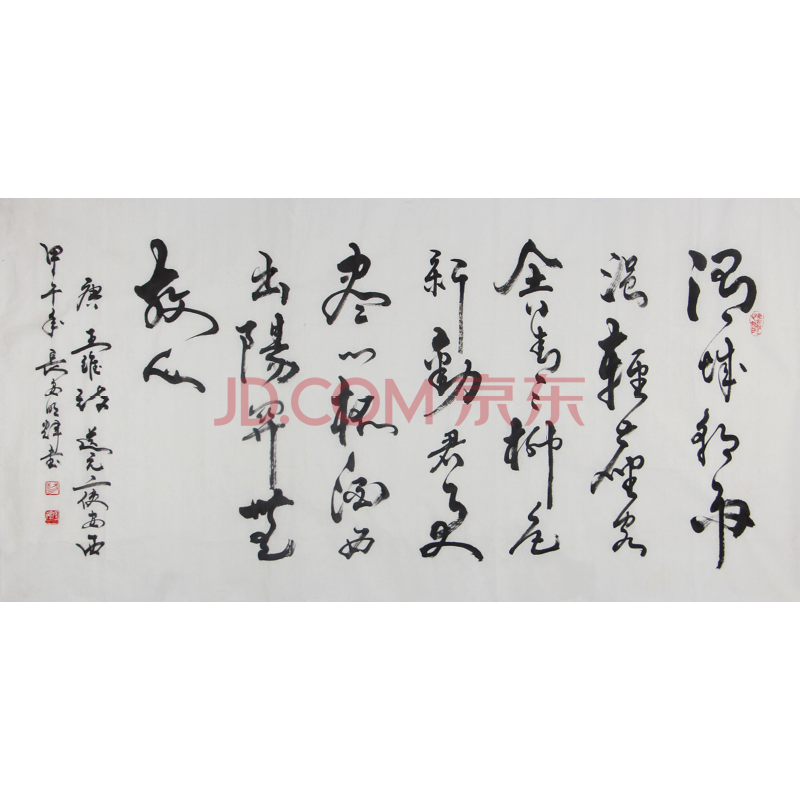 渭城朝雨
浥輕塵客
舍青々柳色
新勸君更
盡一杯酒西
出陽關無
故人
唐王維詩送元二使安西
甲午年長安明輝書
JD.COM 京东